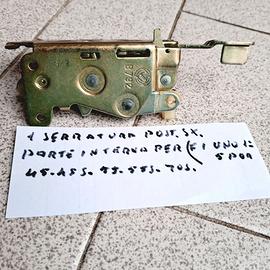 8792
1 SERRATURA POST. SX.
PARTE INTERNA PER (F 1 UNO IE
5 POR
45. 45S. 55. 55S. 70S.